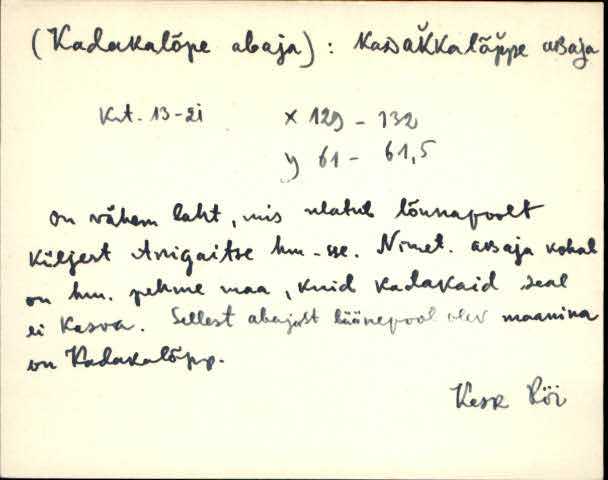 (Kadakalõpe abaja) : kaDak̆kalõp̆pe aBaja
Krt. 13-21
x 129 - 132
y 61 - 61,5
on vähem laht, mis ulatub lõunapoolt
küljest Arigaitse hm-sse. Nimet. aBaja kohal
on hm. pehme maa, kuid kadakaid seal
ei kasva. Sellest abajast läänepool olev maanina
on Kadakalõpp.
Kesk Röi